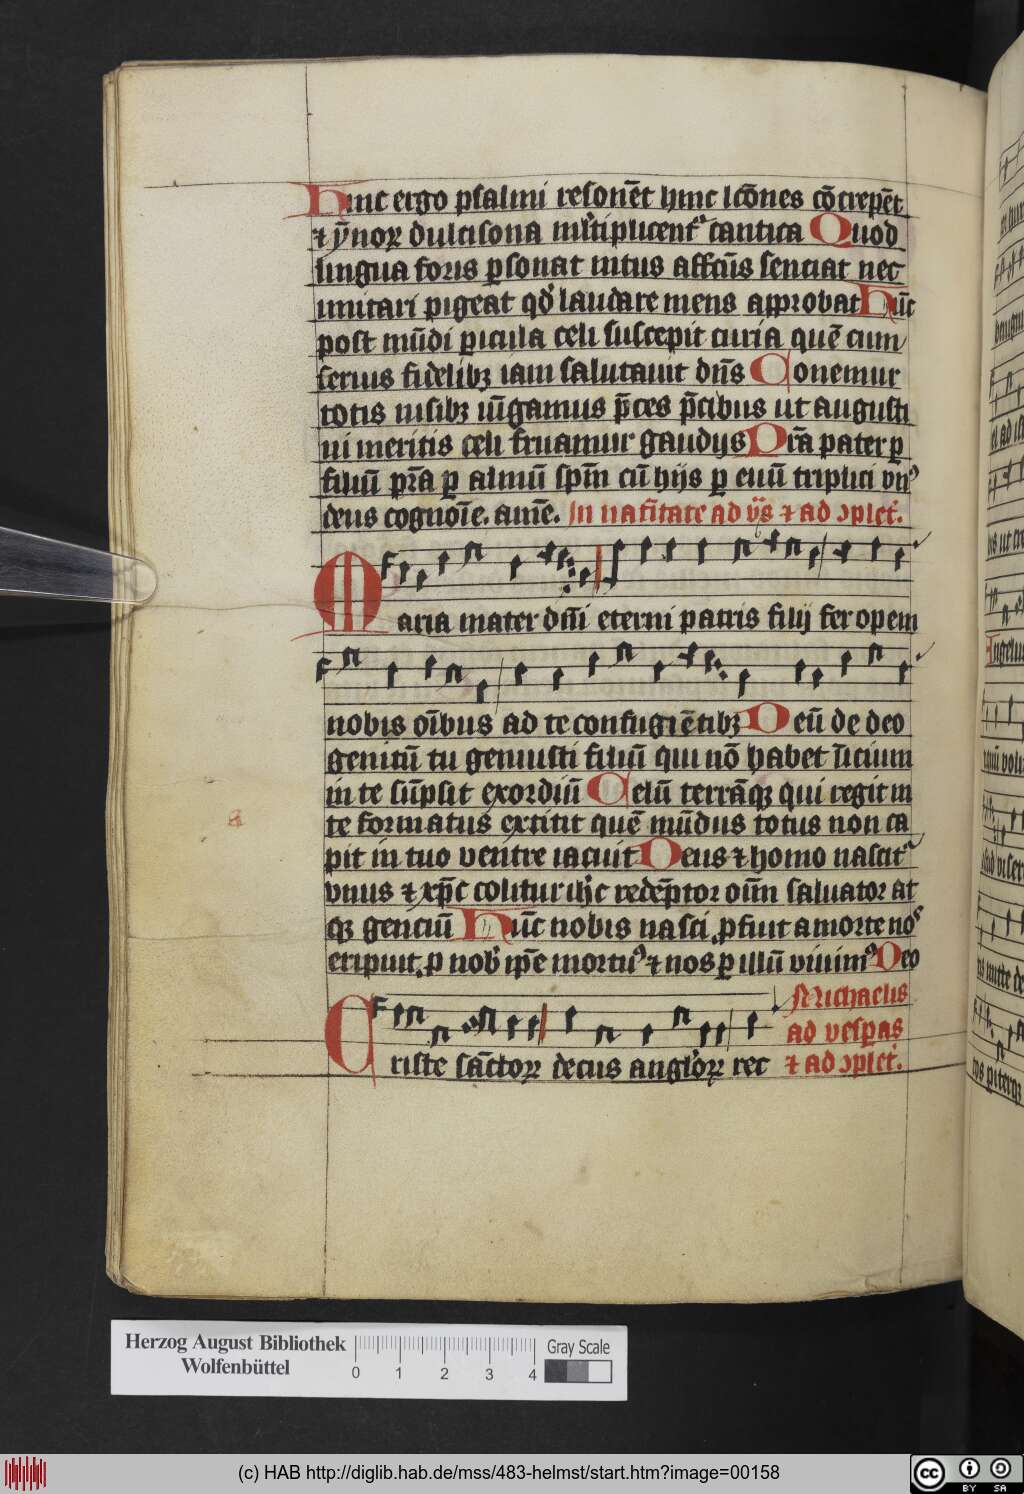 Hinc ergo psalmi resonēt hinc lcōnes cōcrepēt
⁊ ẏnoꝝ dulcisona ml̄tiplicentᷣ cantica Quod
lingua foris ꝑsonat intus affc̄us senciat nec
imitari pigeat qd̓ laudare mens approbat Hūc
post mūdi picula celi suscepit curia quē cum
serius fidelibꝫ iam salutauit dn̄s Conemur
totis nisibꝫ iūgamus p̄ces p̄cibus ut augusti
ni meritis celi fruamur gaudijs Pr̄a pater ꝑ
filiū pr̄a ꝑ almū sp̄m cū hijs ꝑ euū triplici vn̄ꝰ
deus cognoīe. amē. In natītate ad vs̄ ⁊ ad ɔplet̓.
Maria mater dn̄i eterni patris filij fer opem
nobis oībus ad te confugiētibꝫ Deū de deo
genitū tu genuisti filiū qui nō habet īicium
in te sūpsit exordiū Celū terrāqꝫ qui regit in
te formatus extitit quē mūdus totus non ca
pit in tuo ventre iacuit Deus ⁊ homo nascitᷣ
vnus ⁊ xp̄c colitur ih̄c redēptor oīm saluator at
qꝫ genciū Hūc nobis nasci ꝓfuit a morte noˢ
eripuit. ꝓ nob̓ ip̄e mortuꝰ ⁊ nos ꝑ illū viuimꝰ Deo
Michaelis
ad vesꝑas
Criste sāctoꝝ decus angl̓oꝝ rec ⁊ ad ɔplet̓.
a
Herzog August Bibliothek
Wolfenbüttel
0 1 2 3 4
Gray Scale
(c) HAB http://diglib.hab.de/mss/483-helmst/start.htm?image=00158
cc BY SA